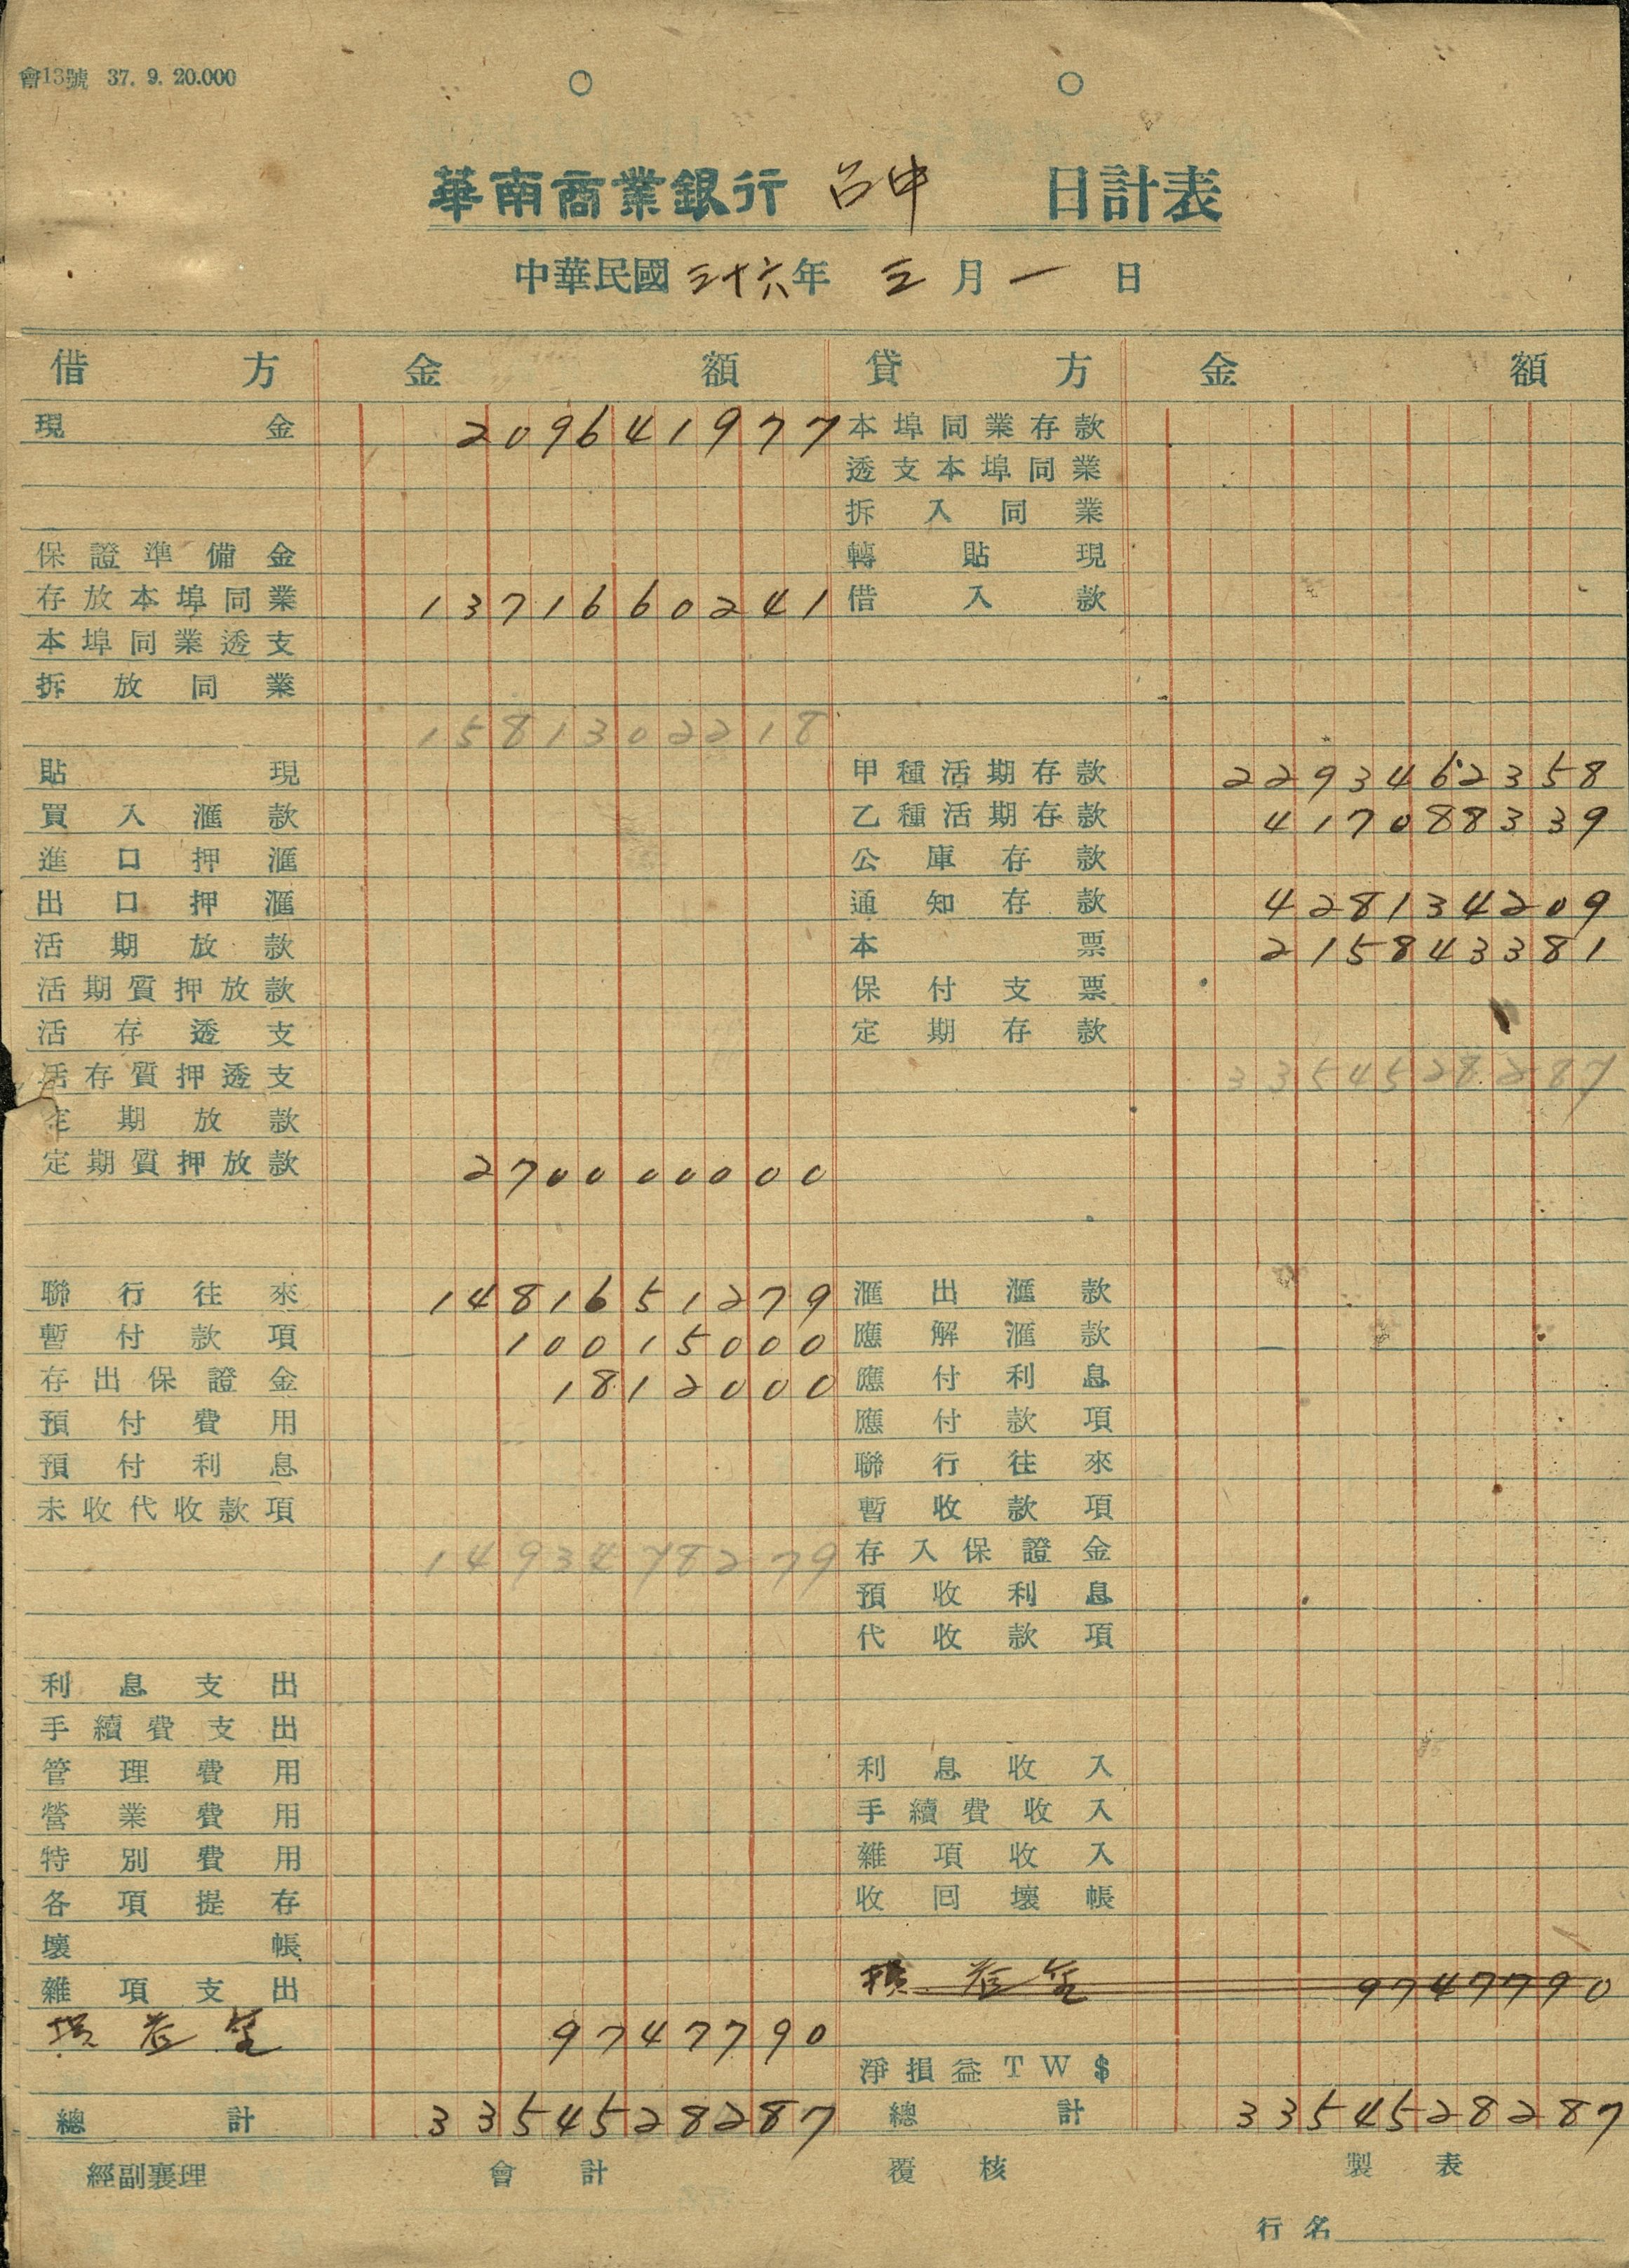 會13號 37. 9. 20.000
華南商業銀行 台中 日計表
中華民國三十六年 三月一日
借方 金額 貸方 金額
現金 209641977 本埠同業存款
透支本埠同業
拆入同業
保證準備金 轉貼現
存放本埠同業 1371660241 借入款
本埠同業透支
拆放同業
1581302218
貼現 甲種活期存款 2293462358
買入滙款 乙種活期存款 417088339
進口押滙 公庫存款
出口押滙 通知存款 428134209
活期放款 本票 215843381
活期質押放款 保付支票
活存透支 定期存款
活存質押透支 3354528287
定期放款
定期質押放款 270000000
聯行往來 1481651279 滙出滙款
暫付款項 10015000 應解滙款
存出保證金 1812000 應付利息
預付費用 應付款項
預付利息 聯行往來
未收代收款項 暫收款項
1493478279 存入保證金
預收利息
代收款項
利息支出
手續費支出
管理費用 利息收入
營業費用 手續費收入
特別費用 雜項收入
各項提存 收回壞帳
壞帳
雜項支出 損益金 9747790
損益金 9747790
淨損益TW$
總計 3354528287 總計 3354528287
經副襄理 會計 覆核 製表
行名